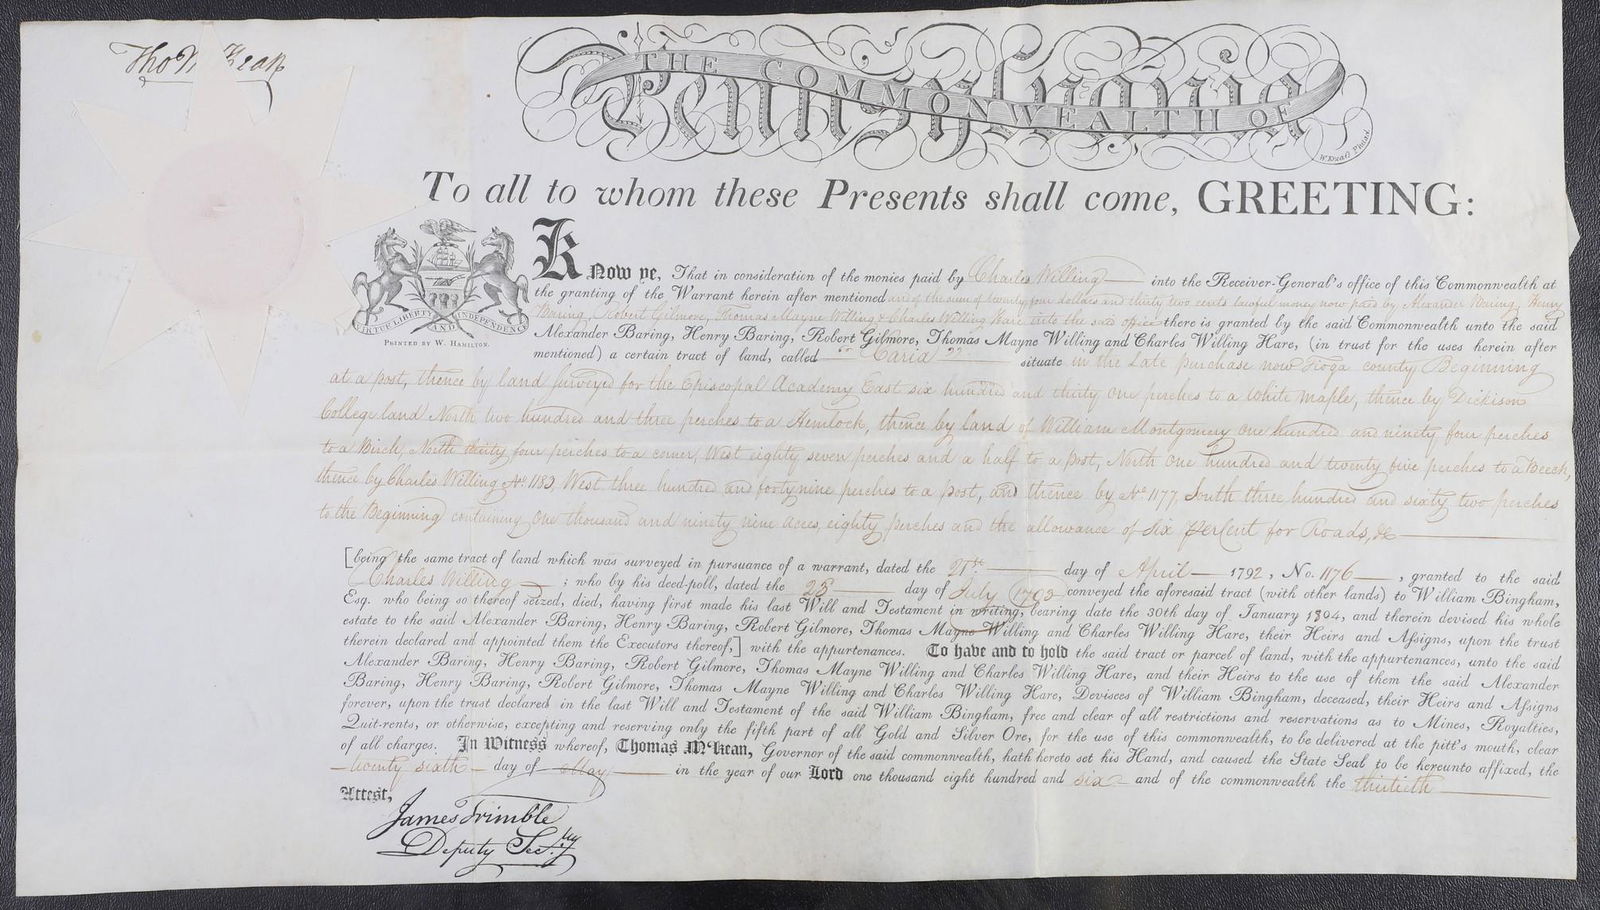 Tho M:Kean
THE COMMONWEALTH OF
Pennsylvania
W. Kneass Philad.
To all to whom these Presents shall come, GREETING:
VIRTUE LIBERTY AND INDEPENDENCE
PRINTED BY W. HAMILTON.
Know ye, That in consideration of the monies paid by Charles Willing into the Receiver-General's office of this Commonwealth at
the granting of the Warrant herein after mentioned and of the sum of twenty four dollars and thirty two cents lawful money now paid by Alexander Baring, Henry
Baring, Robert Gilmore, Thomas Mayne Willing & Charles Willing Hare into the said office there is granted by the said Commonwealth unto the said
Alexander Baring, Henry Baring, Robert Gilmore, Thomas Mayne Willing and Charles Willing Hare, (in trust for the uses herein after
mentioned) a certain tract of land, called "Caria" situate in the Late purchase now Tioga county Beginning
at a post, thence by land surveyed for the Episcopal Academy East six hundred and thirty one perches to a White Maple, thence by Dickison
College land North two hundred and three perches to a Hemlock, thence by land of William Montgomery one hundred and ninety four perches
to a Birch, North thirty four perches to a corner, West eighty seven perches and a half to a post, North one hundred and twenty five perches to a Beech,
thence by Charles Willing No. 1183, West three hundred and forty nine perches to a post, and thence by No 1177 South three hundred and sixty two perches
to the Beginning containing one thousand and ninety nine acres, eighty perches and the allowance of six per Cent for Roads, &c
[being the same tract of land which was surveyed in pursuance of a warrant, dated the 21st day of April 1792, No. 1176, granted to the said
Charles Willing; who by his deed-poll, dated the 25 day of July 1793 conveyed the aforesaid tract (with other lands) to William Bingham,
Esq. who being so thereof seized, died, having first made his last Will and Testament in writing, bearing date the 30th day of January 1804, and therein devised his whole
estate to the said Alexander Baring, Henry Baring, Robert Gilmore, Thomas Mayne Willing and Charles Willing Hare, their Heirs and Assigns, upon the trust
therein declared and appointed them the Executors thereof,] with the appurtenances. To have and to hold the said tract or parcel of land, with the appurtenances, unto the said
Alexander Baring, Henry Baring, Robert Gilmore, Thomas Mayne Willing and Charles Willing Hare, and their Heirs to the use of them the said Alexander
Baring, Henry Baring, Robert Gilmore, Thomas Mayne Willing and Charles Willing Hare, Devisees of William Bingham, deceased, their Heirs and Assigns
forever, upon the trust declared in the last Will and Testament of the said William Bingham, free and clear of all restrictions and reservations as to Mines, Royalties,
Quit-rents, or otherwise, excepting and reserving only the fifth part of all Gold and Silver Ore, for the use of this commonwealth, to be delivered at the pitt's mouth, clear
of all charges. In Witness whereof, Thomas M'Kean, Governor of the said commonwealth, hath hereto set his Hand, and caused the State Seal to be hereunto affixed, the
twenty sixth day of May in the year of our Lord one thousand eight hundred and six and of the commonwealth the thirtieth
Attest,
James Trimble
Deputy Sec.ty